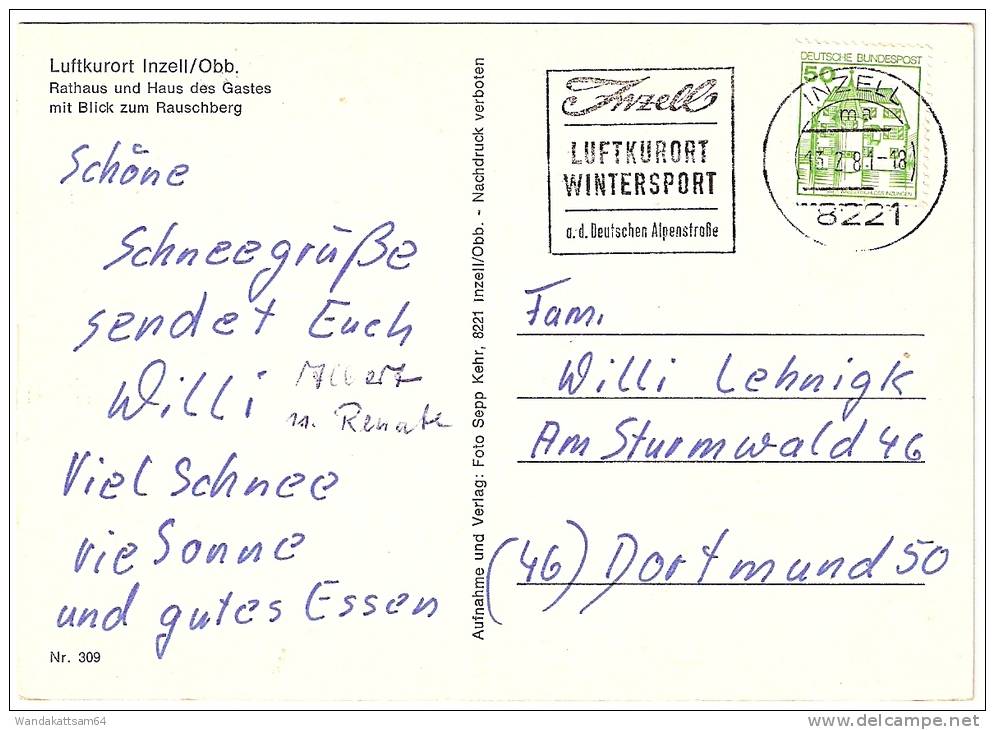 Luftkurort Inzell/Obb.
Rathaus und Haus des Gastes
mit Blick zum Rauschberg
Schöne
Schneegrüße
sendet Euch
Willi Albert
u. Renate
Viel Schnee
vie Sonne
und gutes Essen
Nr. 309
Aufnahme und Verlag: Foto Sepp Kehr, 8221 Inzell/Obb. - Nachdruck verboten
Inzell
LUFTKURORT
WINTERSPORT
a.d. Deutschen Alpenstraße
DEUTSCHE BUNDESPOST
50
INZELL
ma
13.2.81-18
8221
Fam.
Willi Lehnigk
Am Sturmwald 46
(46) Dortmund 50
Wandakattsam64
www.delcampe.net